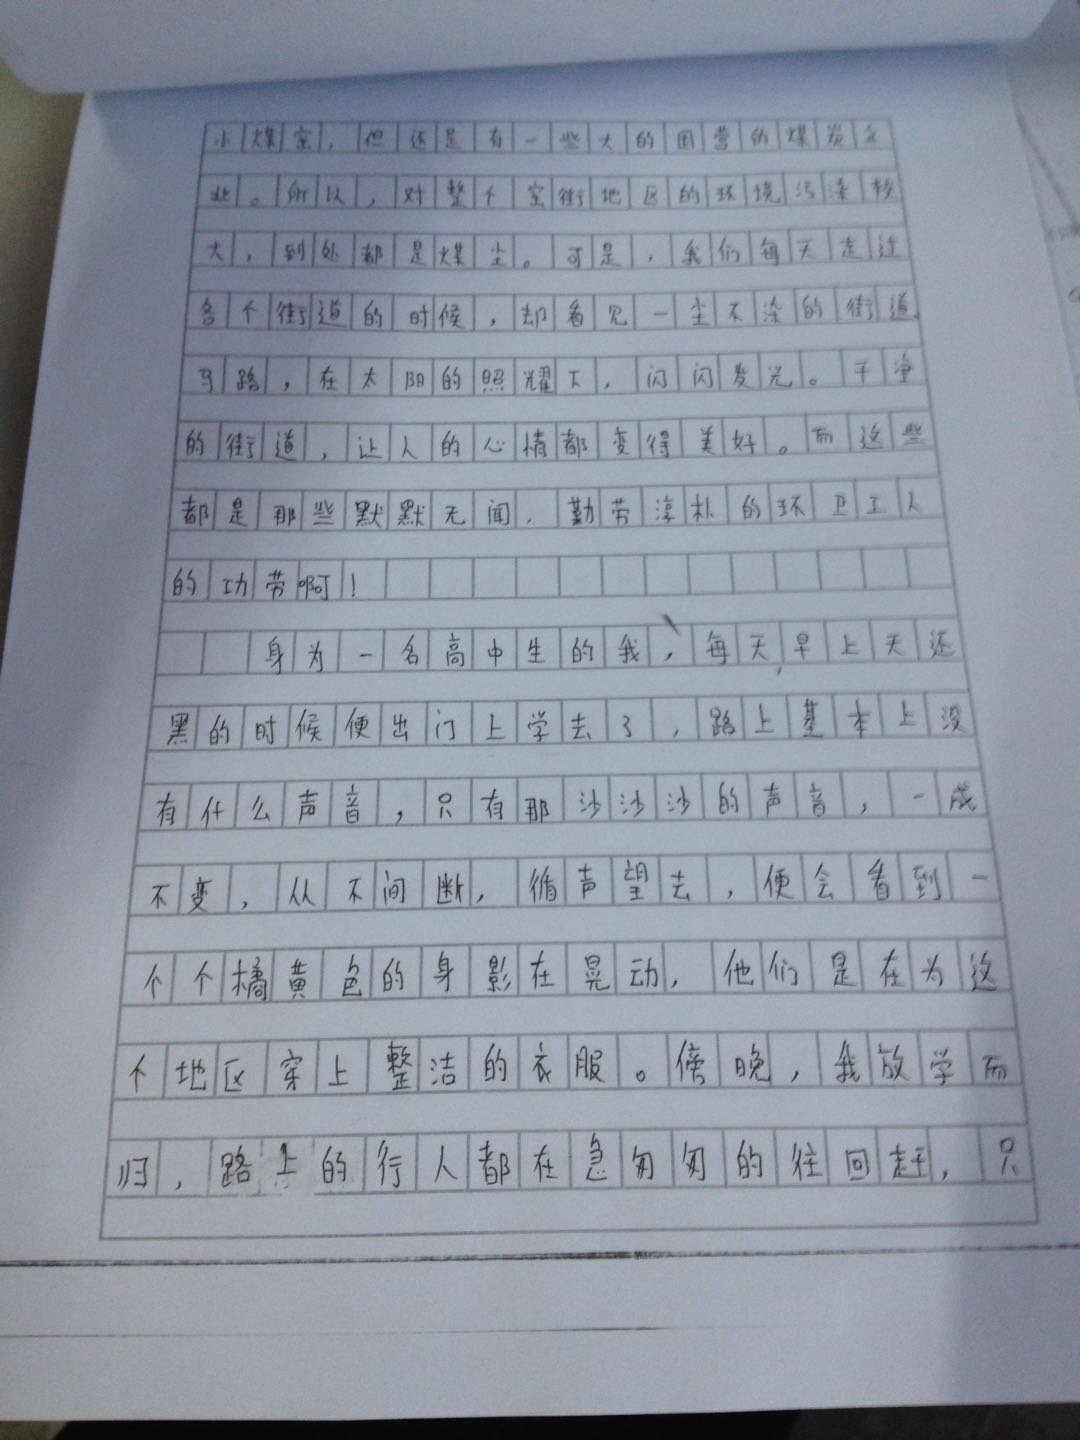 小煤窑，但还是有一些大的国营的煤炭企
业。所以，对整个窑街地区的环境污染较
大，到处都是煤尘。可是，我们每天走过
各个街道的时候，却看见一尘不染的街道
马路，在太阳的照耀下，闪闪发光。干净
的街道，让人的心情都变得美好。而这些
都是那些默默无闻，勤劳淳朴的环卫工人
的功劳啊！
身为一名高中生的我，每天早上天还
黑的时候便出门上学去了，路上基本上没
有什么声音，只有那沙沙沙的声音，一成
不变，从不间断，循声望去，便会看到一
个个橘黄色的身影在晃动，他们是在为这
个地区穿上整洁的衣服。傍晚，我放学而
归，路上的行人都在急匆匆的往回赶，只